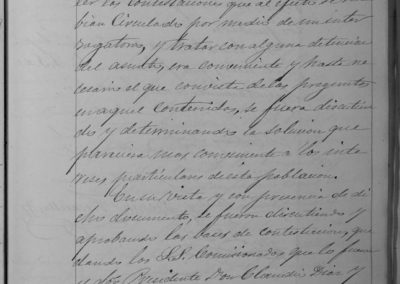 las contestaciones que al efecto se ha
bian Circulado por medio de un inter
rogatorio, y tratar con alguna detencion
del asunto, era conveniente y hasta ne
cesario el que con vista de las preguntas
en aquel Contenidas, se fuera discutien
do y determinando la solucion que
pareciera mas conveniente a los inte
reses particulares de esta poblacion.
En su vista y con presencia de di
cho documento, se fueron discutiendo y
aprobando las bases de contestacion, que
dando los S.S. Comisionados que lo fueron
Presidente Don Claudio Diaz y